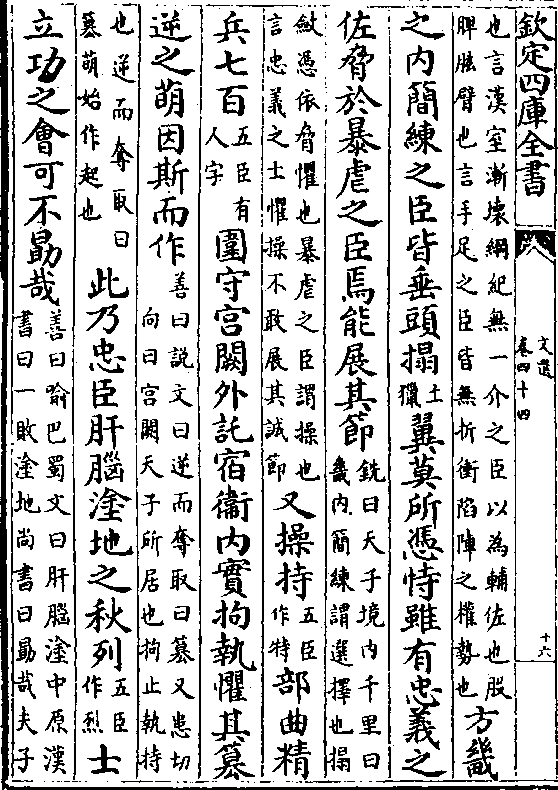 欽定四庫全書
文選
卷四十四
十六
也言漢室漸壊綱紀無一介之臣以為輔佐也股
脾肱臂也言手足之臣皆無折衝陷陣之權勢也
方畿
之内簡練之臣皆垂頭搨土獵翼莫所憑恃雖有忠義之
佐脅於暴虐之臣焉能展其節
銑曰天子境内千里曰
畿内簡練謂選擇也搨
斂憑依脅懼也暴虐之臣謂操也
言忠義之士懼操不敢展其誠節
又操持五臣作特部曲精
兵七百五臣有人字圍守宮闕外託宿衞内實拘執懼其簒
逆之萌因斯而作
善曰說文曰逆而奪取曰簒又患切
向曰宮闕天子所居也拘止執持
也逆而奪取曰
簒萌始作起也
此乃忠臣肝腦塗地之秋列五臣作烈士
立功之會可不勗哉
善曰喻巴蜀文曰肝腦塗中原漢
書曰一敗塗地尚書曰勗哉夫子